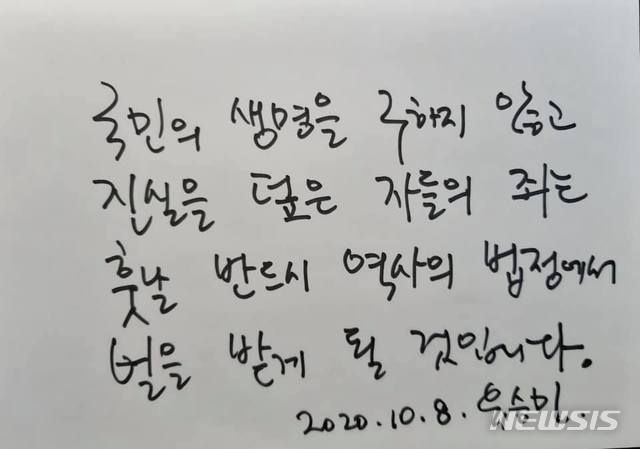 국민의 생명을 구하지 않고
진실을 덮은 자들의 죄는
훗날 반드시 역사의 법정에서
벌을 받게 될 것입니다.
2020.10.8. 유승민.
NEWSIS